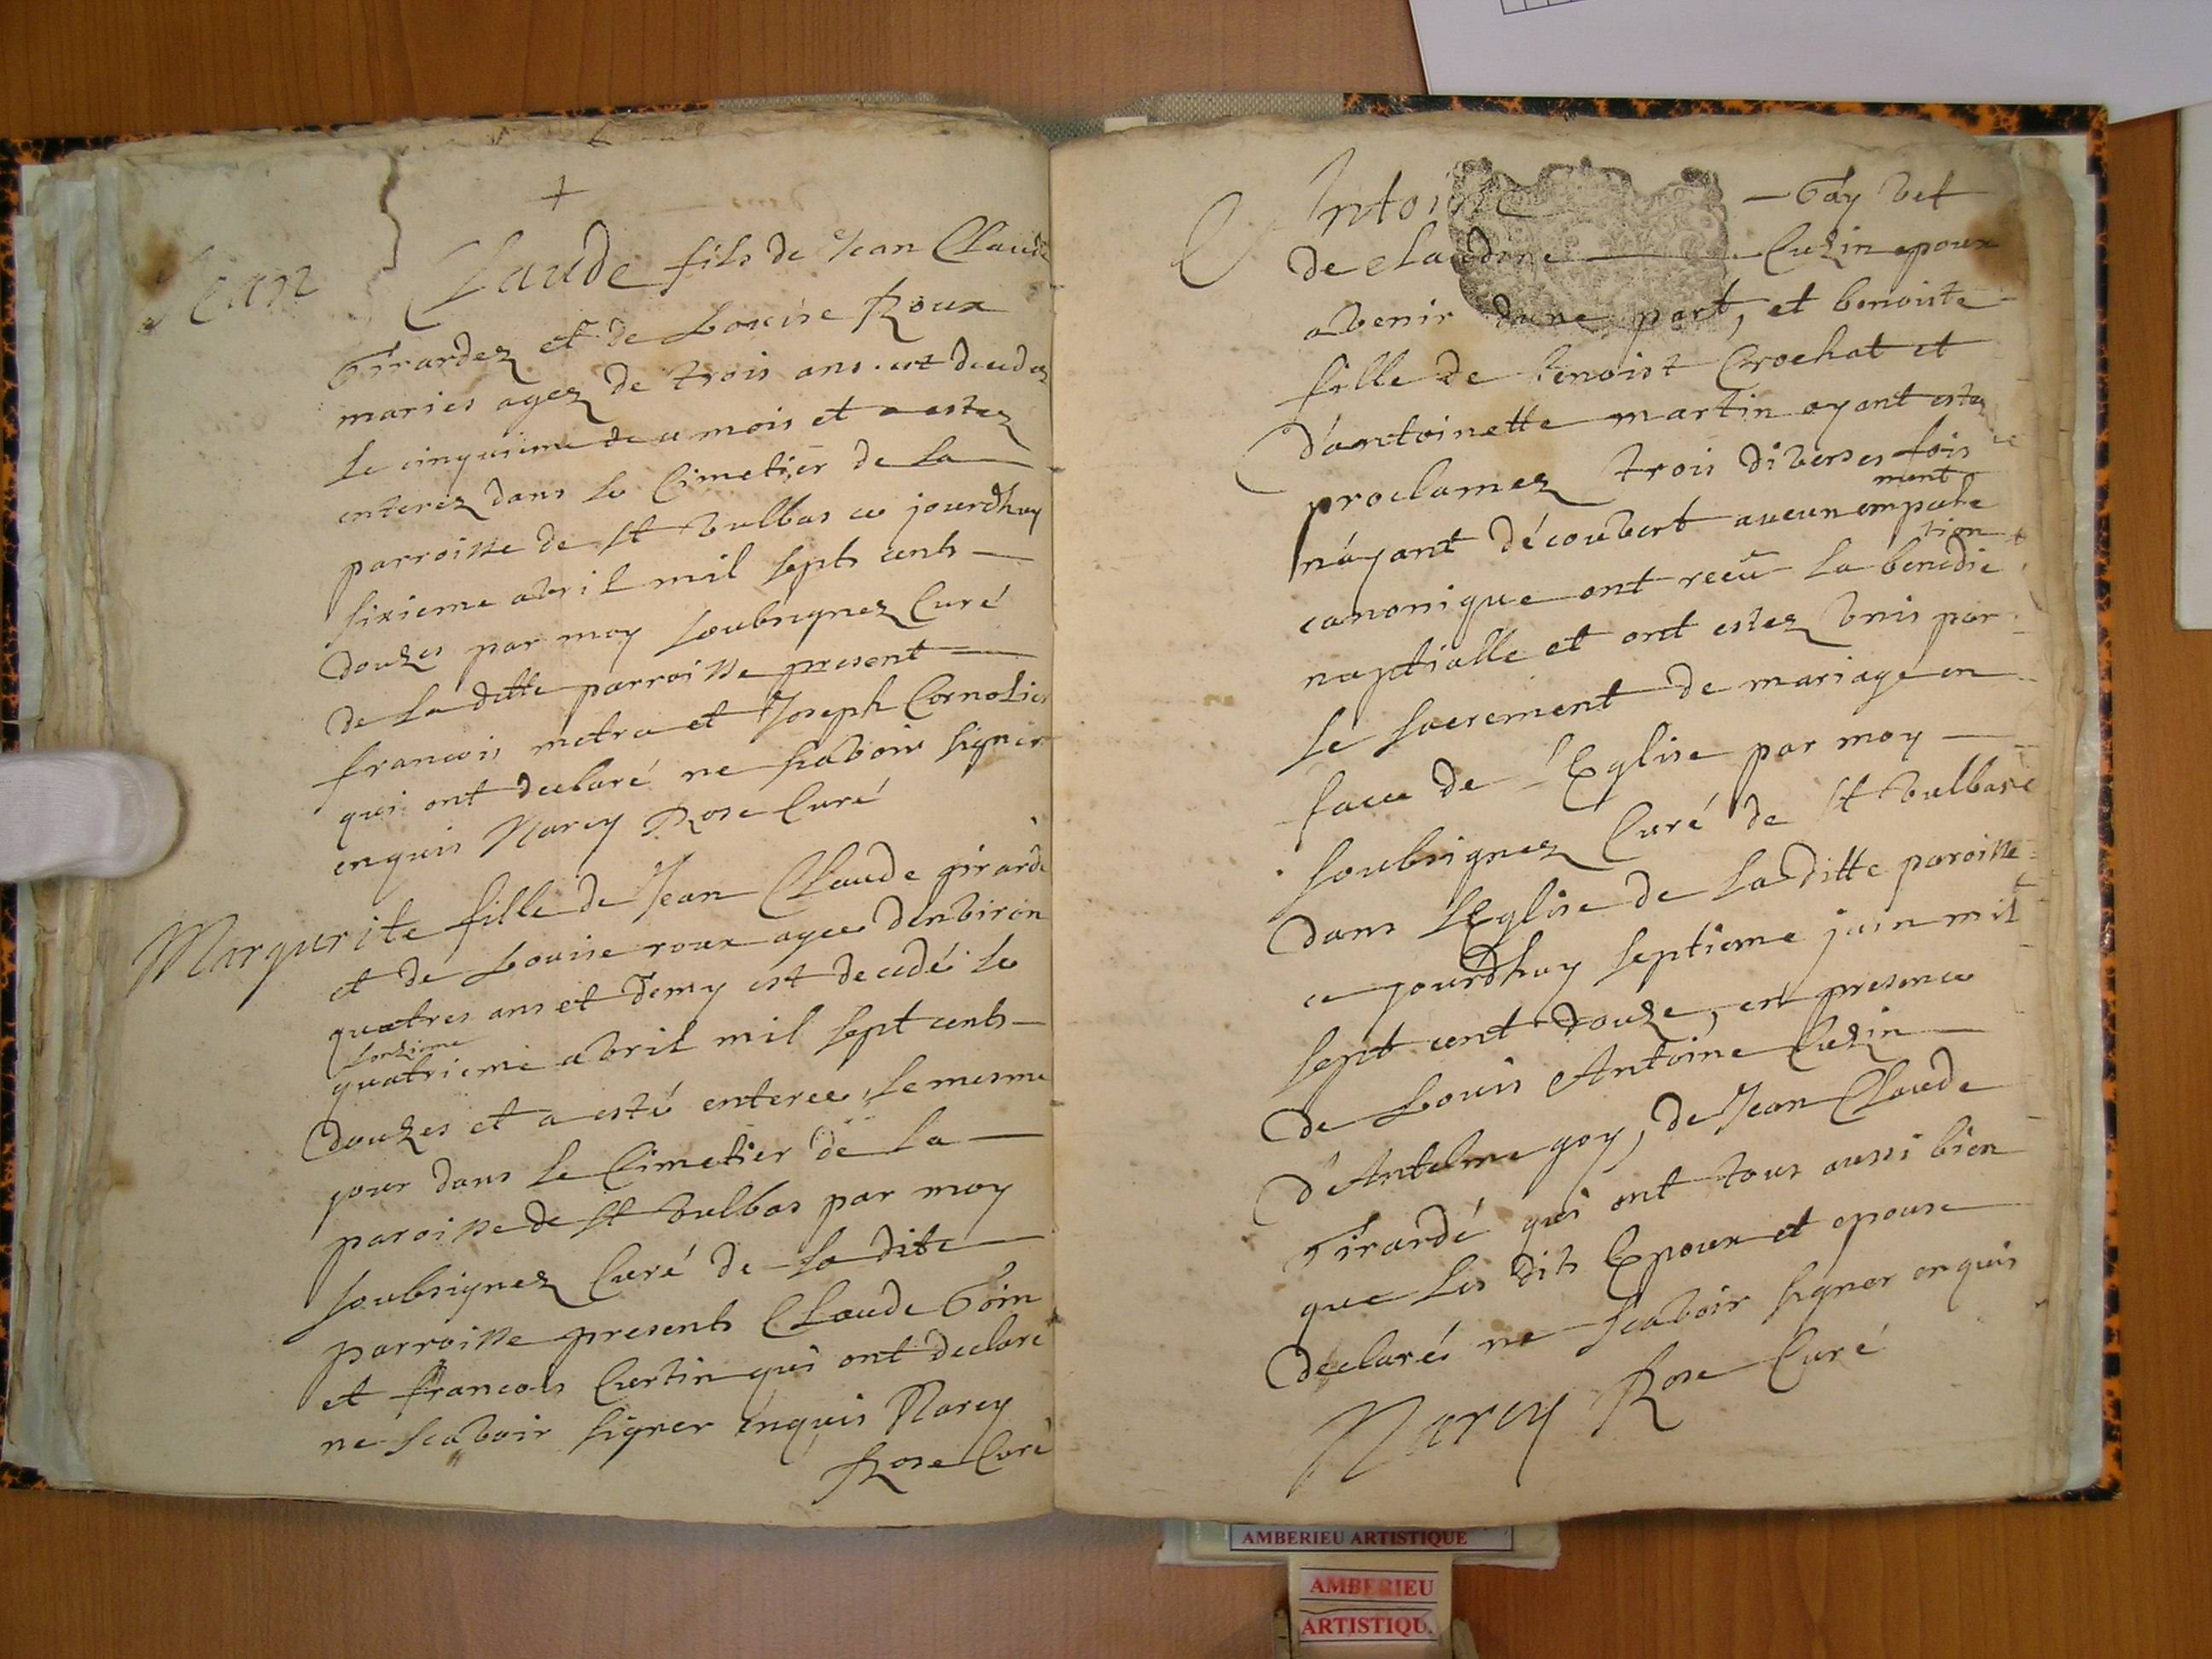 Jean Claude fils de Jean Claude
Girardez et de Louise Roux
maries agez de trois ans est decedez
le cinquieme du mois et a estez
enterez dans le Cimetier de la
parroisse de st vulbas ce jourdhuy
sixieme avril mil septs cents
douzes par moy soubsignez Curé
de la ditte parroisse present
francois metra et Joseph Cornolier
qui ont declaré ne scavoir signer
enquis Narcy Rose Curé
Margurite fille de Jean Claude girardé
et de Louise roux agee denviron
quatres ans et demy est decedé le
quatrieme avril mil sept cents
douzes et a esté enteree le mesme
jour dans le Cimetier de la
paroisse de st vulbas par moy
soubsignez Curé de la dite
parroisse presents Claude Goin
et francois Curtin qui ont declaré
ne scavoir signer enquis Narcy
Rose Curé
Antoine Gay vef
de claudine Cuzin epoux
avenir dune part, et benoiste
fille de benoist Crochat et
d'antoinette martin ayant estez
proclamez trois diverses fois
n'ayant découvert aucun empeche
ment
canonique ont recû la benedic
tion
nuptialle et ont estez unis par
le sacrement de mariage en
face de l'Eglise par moy
soubsignez Curé de st vulbas
dans l'Eglise de la ditte paroisse
ce jourdhuy septieme juin mil
sept cent douze, en presence
de Louis Antoine Cuzin
d'Antelme goy, de Jean Claude
Girardé qui ont tous aussi bien
que les dits Epoux et epouse
declarés ne scavoir signer enquis
Narcy Rose Curé
AMBERIEU ARTISTIQUE
AMBERIEU
ARTISTIQU